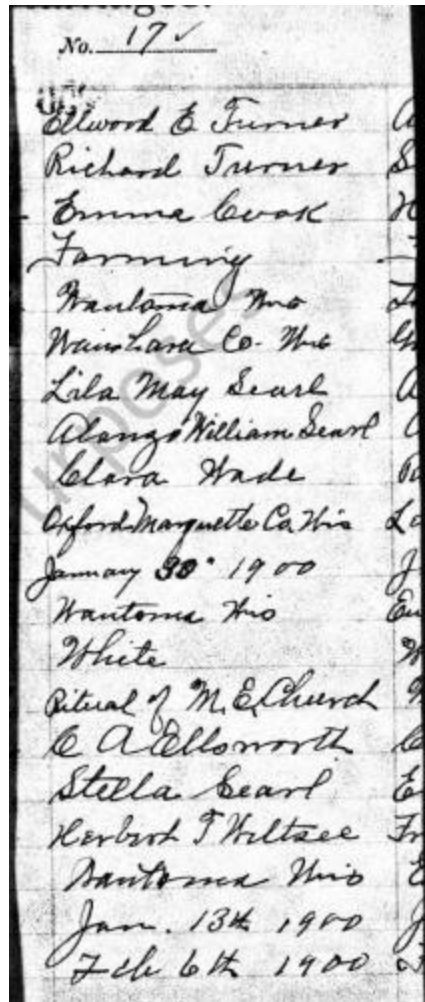 No. 17 ✓
Ellwood E Turner
Richard Turner
Emma Cook
Farming
Wautoma Wis
Waushara Co. Wis
Lila May Searl
Alonzo William Searl
Clara Wade
Oxford Marquette Co. Wis
January 30" 1900
Wautoma Wis
White
Ritual of M.E. Church
C A Ellsworth
Stella Searl
Herbert T Wiltsee
Wautoma Wis
Jan. 13th 1900
Feb 6th 1900
urposes